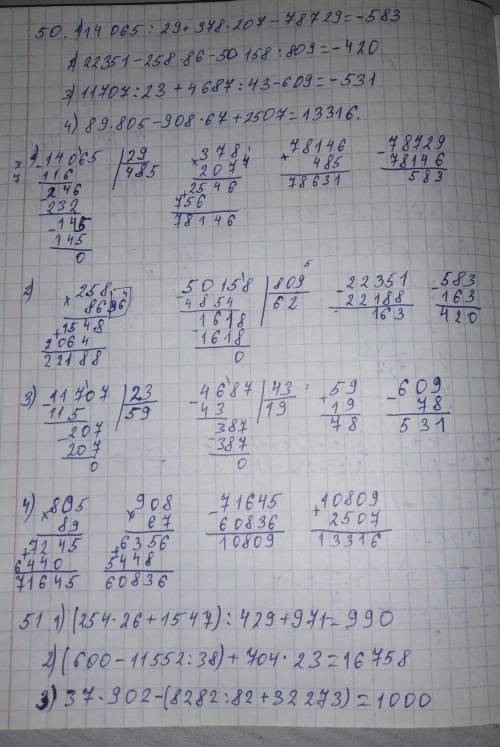 50. 1) 14 065 : 29 + 378 · 207 - 78729 = - 583
2) 22351 - 258 · 86 - 50 158 : 809 = - 420
3) 11707 : 23 + 4687 : 43 - 609 = - 531
4) 89 · 805 - 908 · 67 + 2507 = 13316.
1) -14065 | 29 × 378 × 78146 - 78729
116 485 2074 485 78146
-246 +2546 78631 583
232 756
-145 78146
145
0
2) × 258 - 50158 | 809 - 22351 - 583
86 4854 62 22188 163
+1548 -1618 163 420
2064 1618
22188 0
3) -11707 | 23 - 4687 | 43 + 59 - 609
115 59 43 19 19 78
-207 -387 78 531
207 387
0 0
4) × 805 × 908 - 71645 + 10809
89 67 60836 2507
+7245 +6356 10809 13316
6440 5448
71645 60836
51 1) (254 · 26 + 1547) : 429 + 971 = 990
2) (600 - 11552 : 38) + 704 · 23 = 16758
3) 37 · 902 - (8282 : 82 + 32273) = 1000